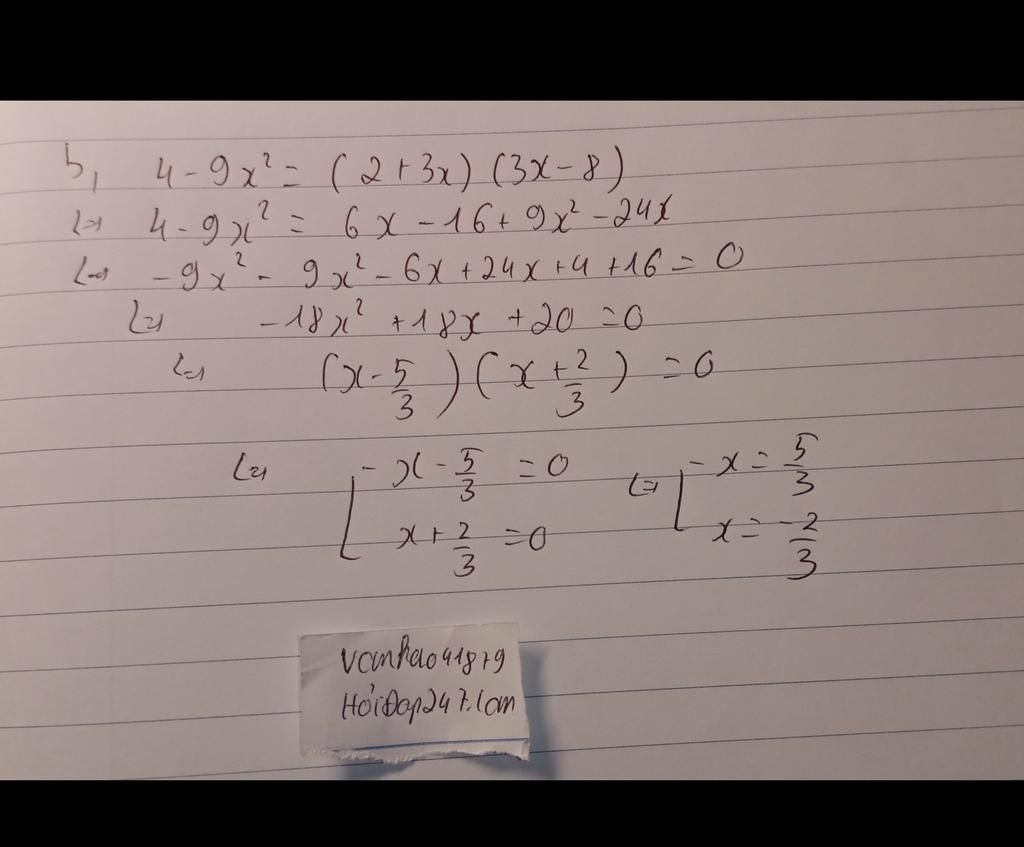 b, 4 - 9x² = (2 + 3x) (3x - 8)
<=> 4 - 9x² = 6x - 16 + 9x² - 24x
<=> - 9x² - 9x² - 6x + 24x + 4 + 16 = 0
<=> - 18x² + 18x + 20 = 0
<=> (x - 5/3) (x + 2/3) = 0
<=> [ x - 5/3 = 0 <=> [ x = 5/3
x + 2/3 = 0 x = -2/3
HỏiĐáp247.com